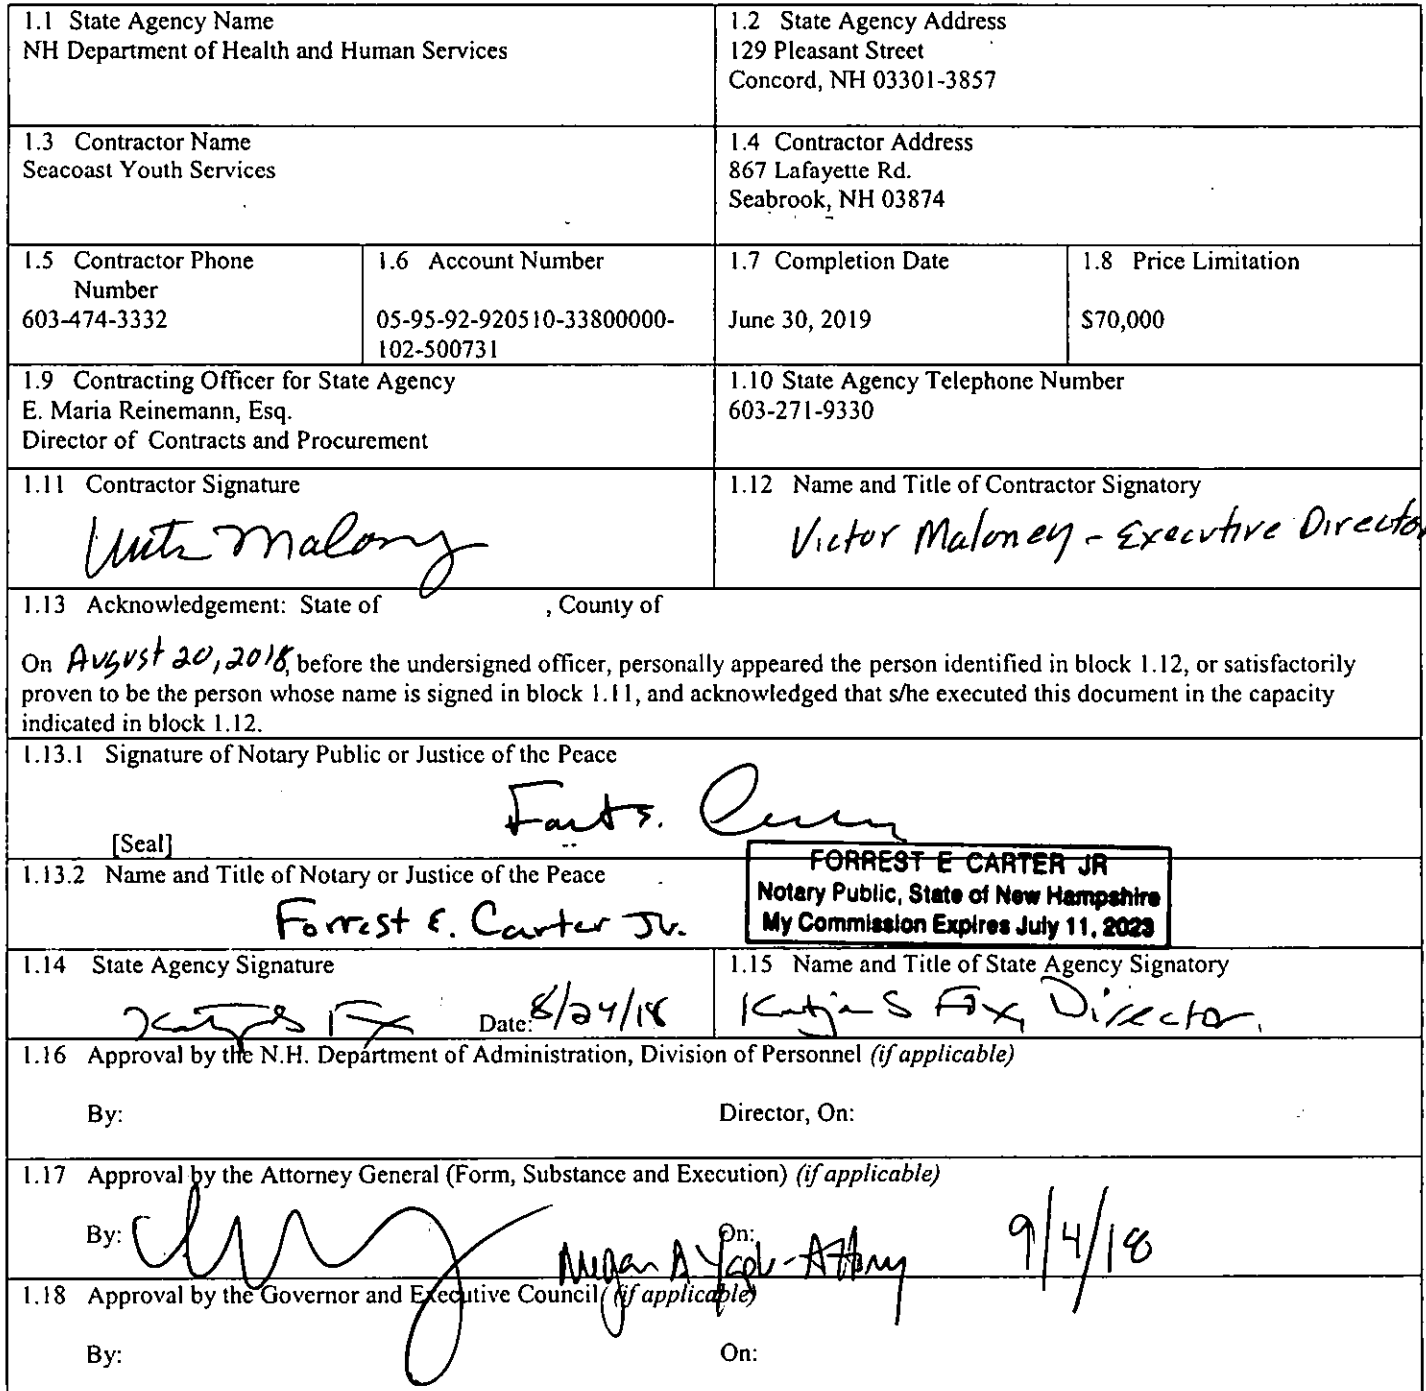 1.1 State Agency Name
NH Department of Health and Human Services
1.2 State Agency Address
129 Pleasant Street
Concord, NH 03301-3857
1.3 Contractor Name
Seacoast Youth Services
1.4 Contractor Address
867 Lafayette Rd.
Seabrook, NH 03874
1.5 Contractor Phone
Number
603-474-3332
1.6 Account Number
05-95-92-920510-33800000-
102-500731
1.7 Completion Date
June 30, 2019
1.8 Price Limitation
$70,000
1.9 Contracting Officer for State Agency
E. Maria Reinemann, Esq.
Director of Contracts and Procurement
1.10 State Agency Telephone Number
603-271-9330
1.11 Contractor Signature
Maloney
1.12 Name and Title of Contractor Signatory
Victor Maloney - Executive Director
1.13 Acknowledgement: State of , County of
On August 20, 2018, before the undersigned officer, personally appeared the person identified in block 1.12, or satisfactorily
proven to be the person whose name is signed in block 1.11, and acknowledged that s/he executed this document in the capacity
indicated in block 1.12.
1.13.1 Signature of Notary Public or Justice of the Peace
[Seal]
1.13.2 Name and Title of Notary or Justice of the Peace
Forrest E. Carter Jr.
FORREST E CARTER JR
Notary Public, State of New Hampshire
My Commission Expires July 11, 2023
1.14 State Agency Signature
Date: 8/24/18
1.15 Name and Title of State Agency Signatory
Katja S Fox, Director.
1.16 Approval by the N.H. Department of Administration, Division of Personnel (if applicable)
By: Director, On:
1.17 Approval by the Attorney General (Form, Substance and Execution) (if applicable)
By: On:
Megan A - Attorney 9/4/18
1.18 Approval by the Governor and Executive Council (if applicable)
By: On: